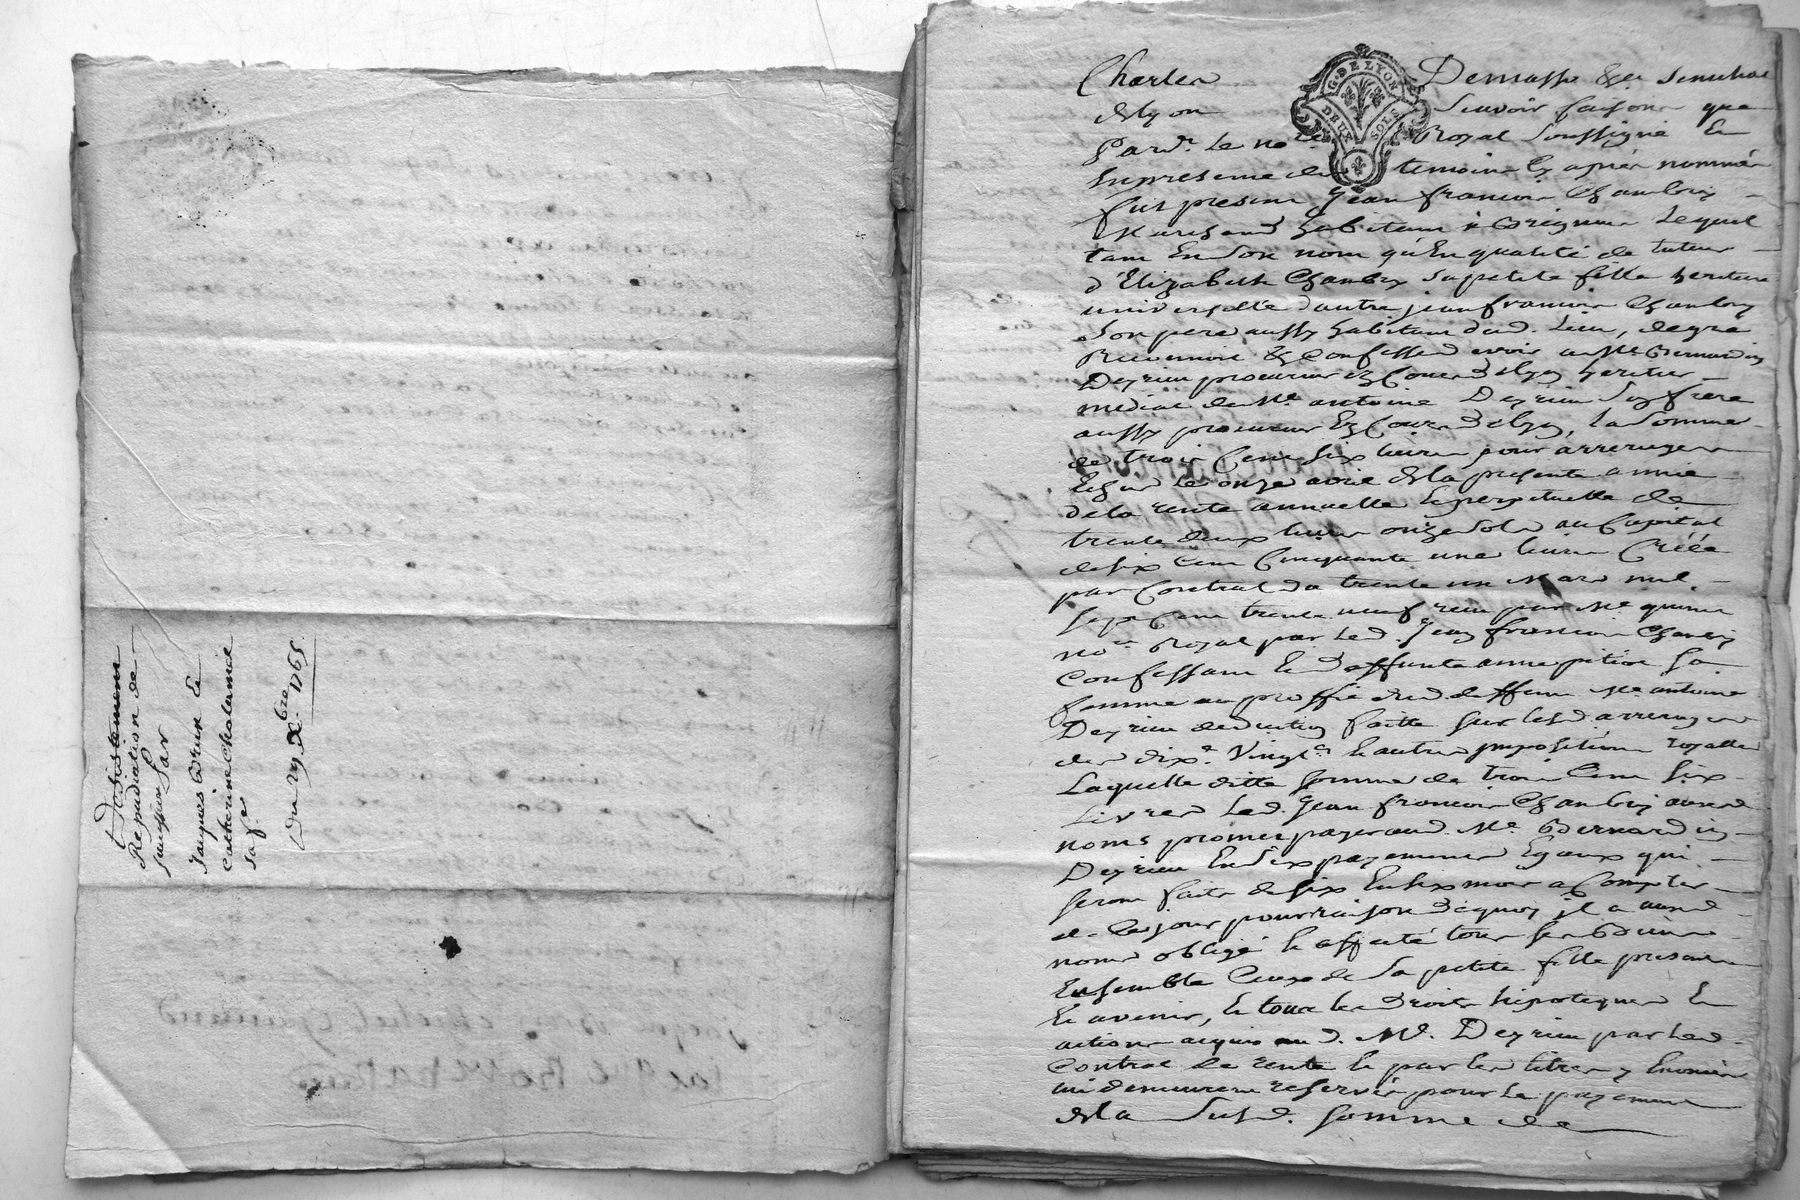 Desistement
Repudiation de
par
Jaques Brun &
Catherine Chalamel
sa fe
du 29 Xbre 1765
G. DE LYON
DEUX SOLS
Charles Demasso &a Senechal
de Lyon Scavoir faisons que
Pard.t le no.re Royal soussigné &
En presence des temoins cy après nommés
fut present Jean francois Chambry
Marchand habitant à Grigneu Lequel
tant En son nom qu'En qualité de tuteur
d'Elizabeth Chambry sa petite fille heritiere
universelle d'autre jean francois Chambry
son pere, aussy habitant dud. Lieu, de gré
Reconnoit & Confesse devoir a Me Bernardin
Deyrieu procureur Ez Cours de Lyon heritier
mediat de Me antoine Deyrieu son frere
aussy procureur Ez Cours de Lyon, la Somme
de trois Cent six livres pour arrerages
Echus le onze avril de la presente année
de la rente annuelle & perpetuelle de
trente deux livres onze sols au Capital
de six Cent Cinquante une livres Créée
par Contrat du trente un Mars mil
sept Cent trente neuf reçu par Me
no.re Royal par led. Jean francois Chambry
Confessant & deffunte anne pition sa
femme au proffit dud. deffunt Me antoine
Deyrieu deduction faitte sur lesd arrerages
des dix.e Vingt.e & autres impositions royalles
Laquelle ditte somme de trois Cent six
Livres Led. Jean francois Chambry auxd.
noms promet payer aud. Me Bernardin
Deyrieu En six payements Egaux qui
seront faits de six En six mois a Compter
de Ce jour pour raison de quoy il a auxd.
noms obligé & affecté tous ses Biens
Ensemble Ceux de sa petite fille presents
& avenir, & tous les droits hipoteques &
actions acquis aud. Me. Deyrieu par led.
Contrat de rente & par les titres y Enoncés
lui demeurent reservés pour le payement
de la Susd. somme de